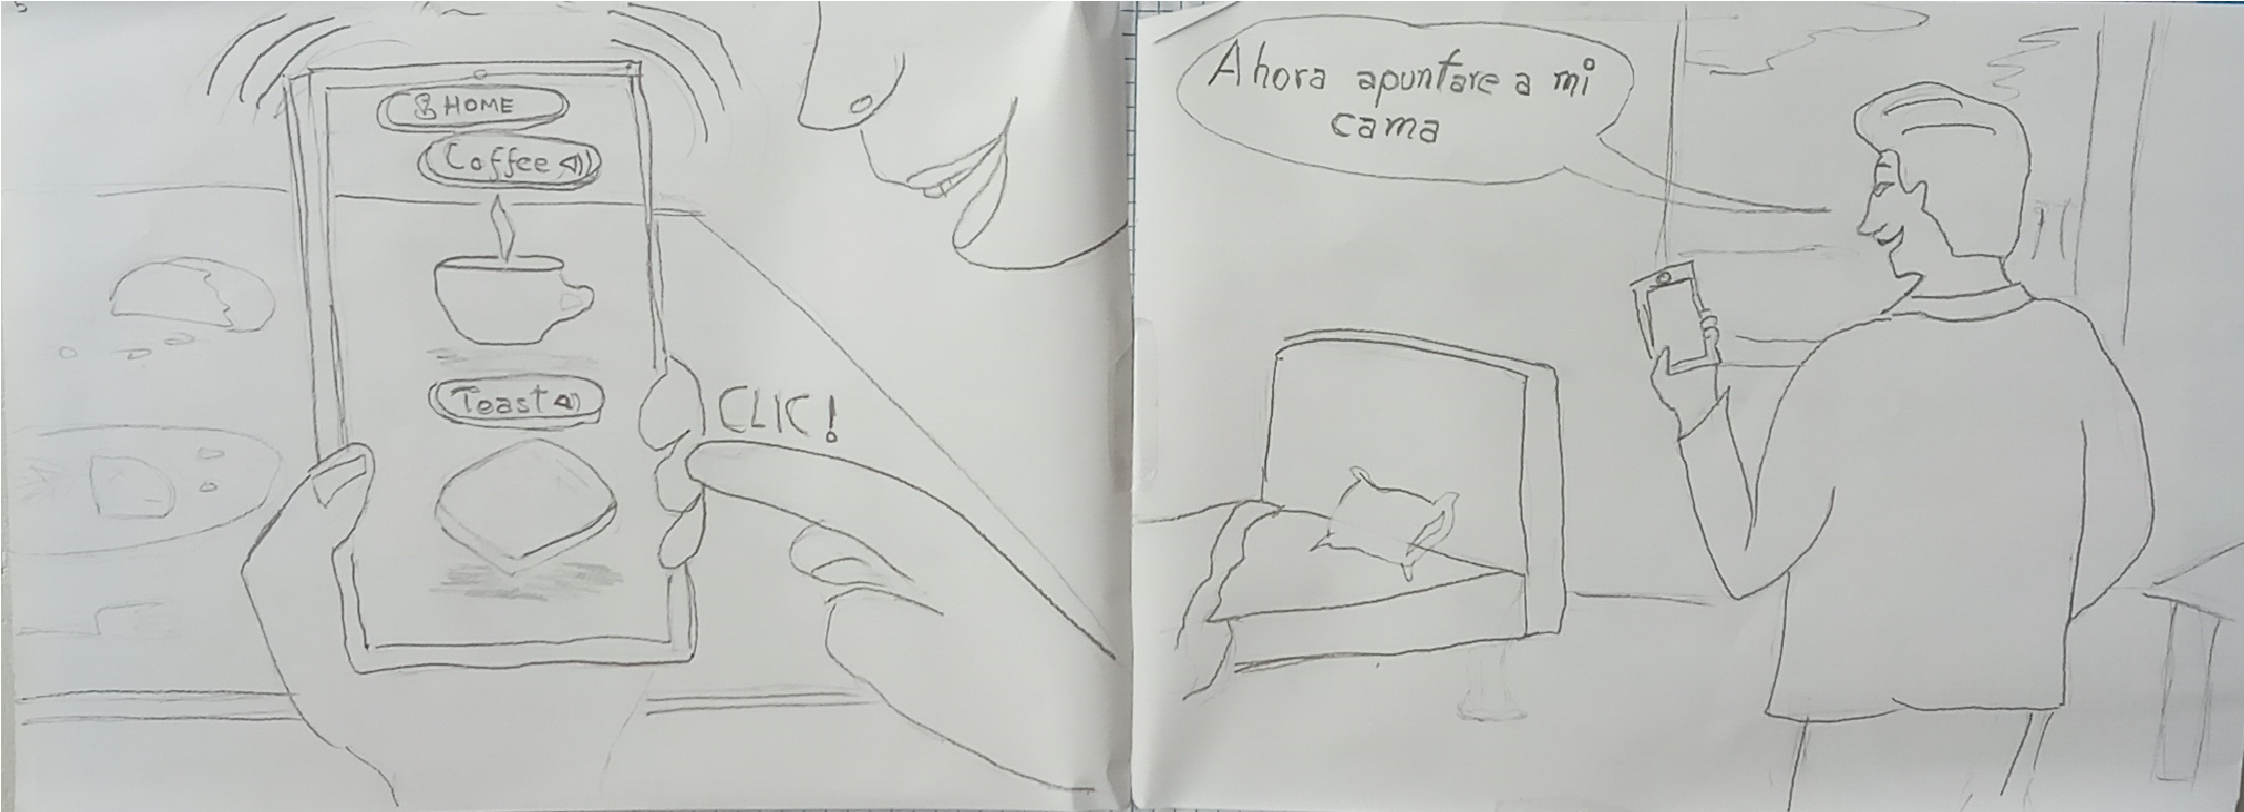 HOME
Coffee
Toast
CLIC!
Ahora apuntare a mi
cama